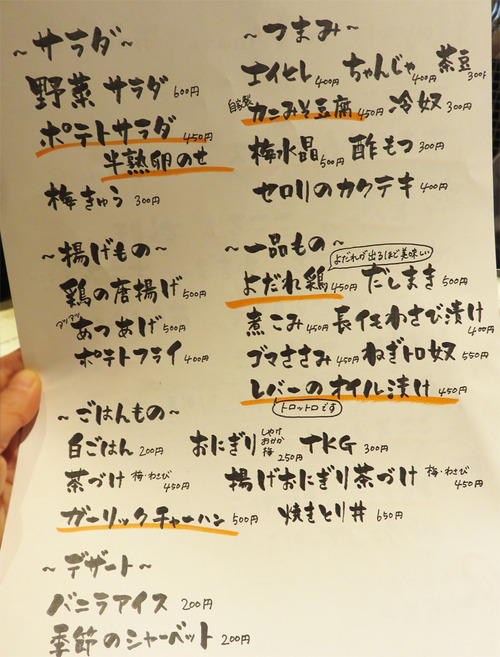 ～サラダ～
野菜サラダ 600円
ポテトサラダ 450円
半熟卵のせ
梅きゅう 300円
～つまみ～
エイヒレ 400円 ちゃんじゃ 400円 茶豆 300円
自家製 カニみそ豆腐 450円 冷奴 300円
梅水晶 500円 酢もつ 300円
セロリのカクテキ 400円
～揚げもの～
鶏の唐揚げ 500円
アツアツ あつあげ 500円
ポテトフライ 400円
～一品もの～
よだれが出るほど美味しい
よだれ鶏 450円 だしまき 500円
煮こみ 450円 長イモわさび漬け 400円
ゴマささみ 450円 ねぎトロ奴 550円
レバーのオイル漬け 450円
トロットロです
～ごはんもの～
白ごはん 200円 おにぎり しゃけ おかか 梅 250円 TKG 300円
茶づけ 梅・わさび 450円 揚げおにぎり茶づけ 梅・わさび 450円
ガーリックチャーハン 500円 焼きとり丼 650円
～デザート～
バニラアイス 200円
季節のシャーベット 200円